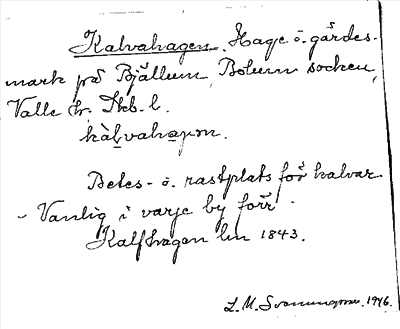 Kalvahagen. Hage o. gärdes-
mark på Bjällum, Bolum socken,
Valle hr. Skb. l.
kàlvahagen.
Betes- o. rastplats för kalvar
- Vanlig i varje by förr.
Kalfhagen lm 1843.
L. M. Svenungsson. 1946.